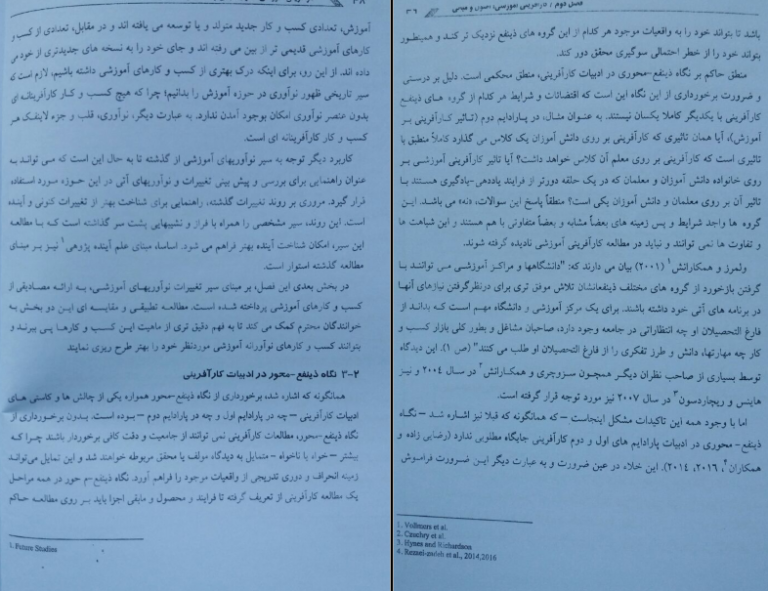 ۳۸
آموزش، تعدادی کسب و کار جدید متولد و یا توسعه می یافته اند و در مقابل، تعدادی از کسب و
کارهای آموزشی قدیمی تر از بین می رفته اند و جای خود را به نسخه های جدیدتری از خود می
داده اند. از این رو، برای اینکه درک بهتری از کسب و کارهای آموزشی داشته باشیم، لازم است ی
سیر تاریخی ظهور نوآوری در حوزه آموزش را بدانیم؛ چرا که هیچ کسب و کار کارآفرینانه ای
بدون عنصر نوآوری امکان بوجود آمدن ندارد. به عبارت دیگر، نوآوری، قلب و جزء لاینفک هر
کسب و کار کارآفرینانه ای است.
کاربرد دیگر توجه به سیر نوآوریهای آموزشی از گذشته تا به حال این است که می تواند به
عنوان راهنمایی برای بررسی و پیش بینی تغییرات و نوآوریهای آتی در این حوزه مورد استفاده
قرار گیرد. مروری بر روند تغییرات گذشته، راهنمایی برای شناخت بهتر از تغییرات کنونی و آینده
است. این روند، سیر مشخصی را همراه با فراز و نشیبهایی پشت سر گذاشته است که با مطالعه
این سیر، امکان شناخت آینده بهتر فراهم می شود. اساسا، مبنای علم آینده پژوهی۱ نیز بر مبنای
مطالعه گذشته استوار است.
در بخش بعدی این فصل، بر مبنای سیر تغییرات نوآوریهای آموزشی، به ارائه مصادیقی از
کسب و کارهای آموزشی پرداخته شده است. مطالعه تطبیقی و مقایسه ای این دو بخش به
خوانندگان محترم کمک می کند تا به فهم دقیق تری از ماهیت این کسب و کارها پی ببرند و
بتوانند کسب و کارهای نوآورانه آموزشی موردنظر خود را بهتر طرح ریزی نمایند
۲-۳ نگاه ذینفع-محور در ادبیات کارآفرینی
همانگونه که اشاره شد، برخورداری از نگاه ذینفع-محور همواره یکی از چالش ها و کاستی های
ادبیات کارآفرینی – چه در پارادایم اول و چه در پارادایم دوم – بوده است. بدون برخورداری از
نگاه ذینفع-محور، مطالعات کارآفرینی نمی توانند از جامعیت و دقت کافی برخوردار باشند چرا که
بیشتر – خواه یا ناخواه – متمایل به دیدگاه مولف یا محقق مربوطه خواهند شد و این تمایل می‌تواند
زمینه انحراف و دوری تدریجی از واقعیات موجود را فراهم آورد. نگاه ذینفع-م حور در همه مراحل
یک مطالعه کارآفرینی از تعریف گرفته تا فرایند و محصول و مابقی اجزا باید بر روی مطالعه حاکم
1. Future Studies
فصل دوم /
باشد تا بتواند خود را به واقعیات موجود هر کدام از این گروه های ذینفع نزدیک تر کند و همینطور
بتواند خود را از خطر احتمالی سوگیری محقق دور کند.
منطق حاکم بر نگاه ذینفع-محوری در ادبیات کارآفرینی، منطق محکمی است. دلیل بر درستی
و ضرورت برخورداری از این نگاه این است که اقتضائات و شرایط هر کدام از گروه های ذینفع
کارآفرینی با یکدیگر کاملا یکسان نیستند. به عنوان مثال، در پارادایم دوم (تاثیر کارآفرینی بر
آموزش)، آیا همان تاثیری که کارآفرینی بر روی دانش آموزان یک کلاس می گذارد کاملاً منطبق با
تاثیری است که کارآفرینی بر روی معلم آن کلاس خواهد داشت؟ آیا تاثیر کارآفرینی آموزشی بر
روی خانواده دانش آموزان و معلمان که در یک حلقه دورتر از فرایند یاددهی-یادگیری هستند با
تاثیر آن بر روی معلمان و دانش آموزان یکی است؟ منطقاً پاسخ این سوالات، «نه» می باشد. این
گروه ها واجد شرایط و پس زمینه های بعضاً مشابه و بعضاً متفاوتی با هم هستند و این شباهت ها
و تفاوت ها نمی توانند و نباید در مطالعه کارآفرینی آموزشی نادیده گرفته شوند.
ولمرز و همکارانش۱ (۲۰۰۱) بیان می دارند که: "دانشگاهها و مراکز آموزشی می توانند با
گرفتن بازخورد از گروه های مختلف ذینفعانشان تلاش موفق تری برای درنظرگرفتن نیازهای آنها
در برنامه های آتی خود داشته باشند. برای یک مرکز آموزشی و دانشگاه مهم است که بدانند از
فارغ التحصیلان او چه انتظاراتی در جامعه وجود دارد، صاحبان مشاغل و بطور کلی بازار کسب و
کار چه مهارتها، دانش و طرز تفکری را از فارغ التحصیلان او طلب می کنند" (ص ۱). این دیدگاه
توسط بسیاری از صاحب نظران دیگر همچون سزوچری و همکارانش۲ در سال ۲۰۰۴ و نیز
هاینس و ریچاردسون۳ در سال ۲۰۰۷ نیز مورد توجه قرار گرفته است.
اما با وجود همه این تاکیدات مشکل اینجاست – که همانگونه که قبلا نیز اشاره شد – نگاه
ذینفع-محوری در ادبیات پارادایم های اول و دوم کارآفرینی جایگاه مطلوبی ندارد (رضایی زاده و
همکاران۴، ۲۰۱۶، ۲۰۱۴). این خلاء در عین ضرورت و به عبارت دیگر این ضرورت فراموش
1. Vollmers et al.
2. Czuchry et al.
3. Hynes and Richardson
4. Rezaei-zadeh et al., 2014,2016